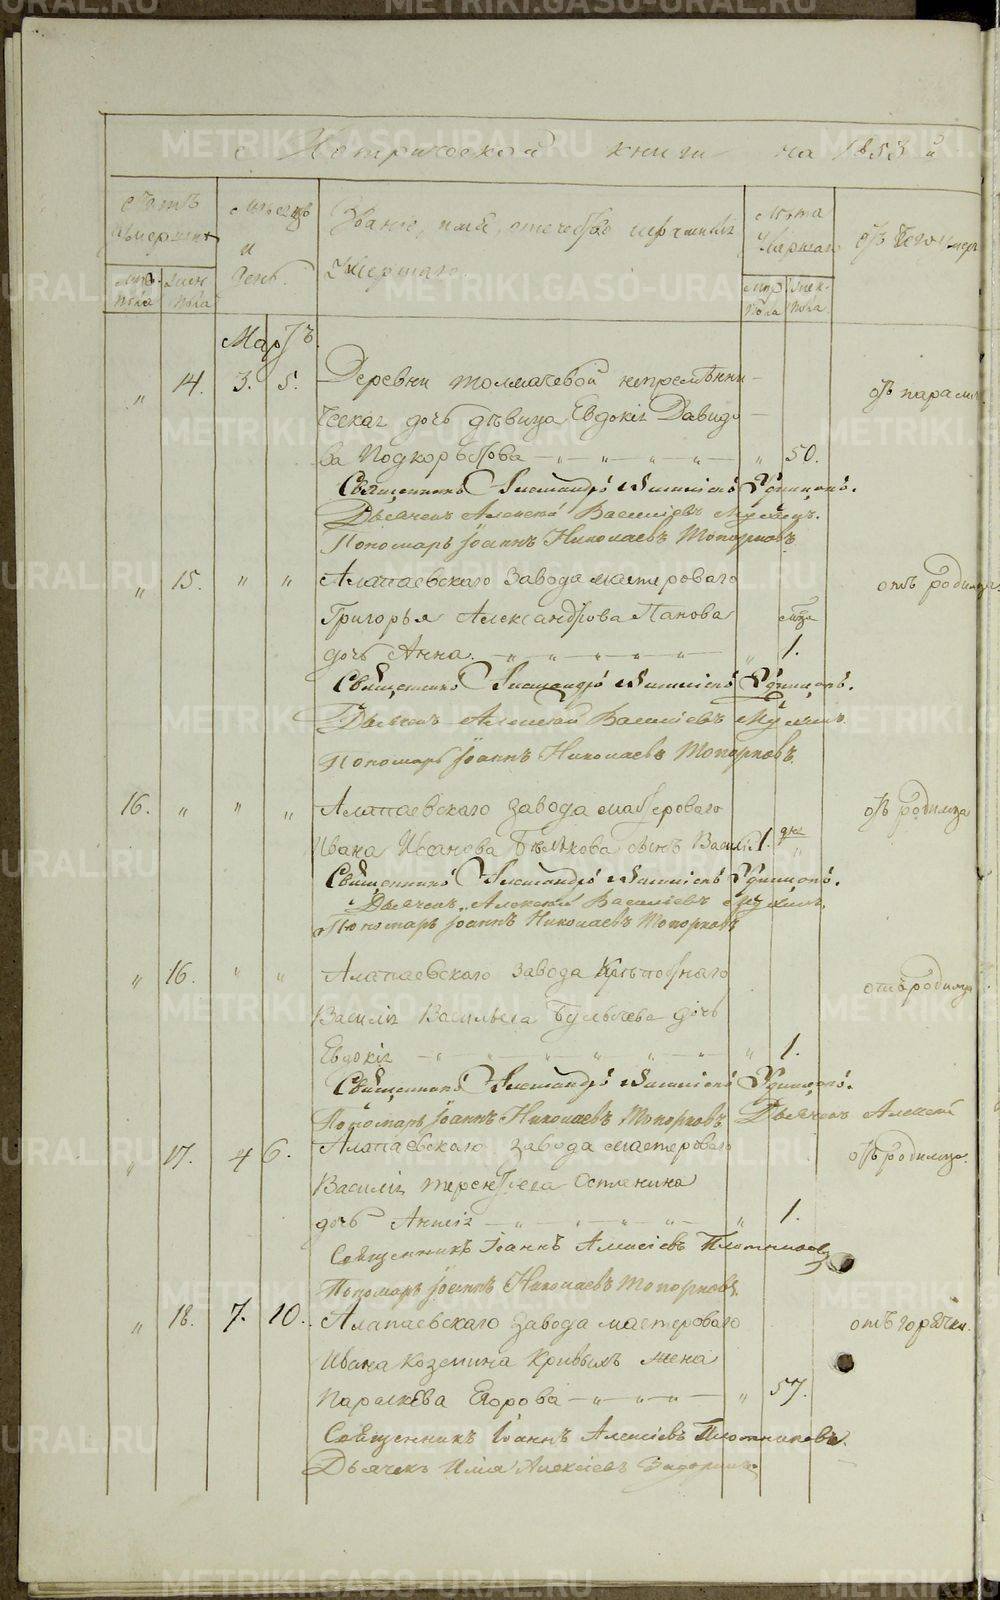 Метрической книги на 1853 й
Счетъ умершихъ
Мѣсяцъ и День.
Званіе, имя, отечество и фамилія Умершаго.
Лѣта Умершаго
Отъ чего умеръ
Муж. пола
Жен. пола
Муж. пола
Жен. пола
Мартъ
" 14. 3. 5. Деревни Толмачевой непремѣнни-
отъ паралич
ческаг дочь дѣвица Евдокія Давидо-
ва Подкорытова — " — " — " — " — " 50.
Священникъ Александръ Удинцовъ.
Дьячекъ Алексѣй Васильевъ
Пономарь Іоаннъ Николаевъ Топорковъ
" 15. " " Алапаевскаго завода мастероваго
отъ родимца
Григорья Александрова Панова
мца
дочь Анна. — " — " — " — " — " 1.
Священникъ Александръ Удинцовъ.
Дьячекъ Алексѣй Васильевъ
Пономарь Іоаннъ Николаевъ Топорковъ.
16. " " " Алапаевскаго завода мастероваго
отъ родимца
Ивана Иванова Бѣлякова сынъ Василій 1. дня "
Священникъ Александръ Удинцовъ.
Дьячекъ Алексѣй Васильевъ
Пономарь Іоаннъ Николаевъ Топорковъ
" 16. " " Алапаевскаго завода
отъ родимца
Василія Васильева Булычева дочь
Евдокія — " — " — " — " — " — " 1.
Священникъ Александръ Удинцовъ.
Пономарь Іоаннъ Николаевъ Топорковъ Дьячекъ Алексѣй
" 17. 4 6. Алапаевскаго завода мастероваго
отъ родимца.
Василія Терентьева Останина
дочь — " — " — " — " — " 1.
Священникъ Іоаннъ Алексіевъ Плотниковъ
Пономарь Іоаннъ Николаевъ Топорковъ.
" 18. 7. 10. Алапаевскаго завода мастероваго
отъ горячки.
Ивана Козмина Кривыхъ жена
Параскева Егорова — " — " — " — " 57.
Священникъ Іоаннъ Алексіевъ Плотниковъ.
Дьячекъ Илія Алексіевъ
METRIKI.GASO-URAL.RU